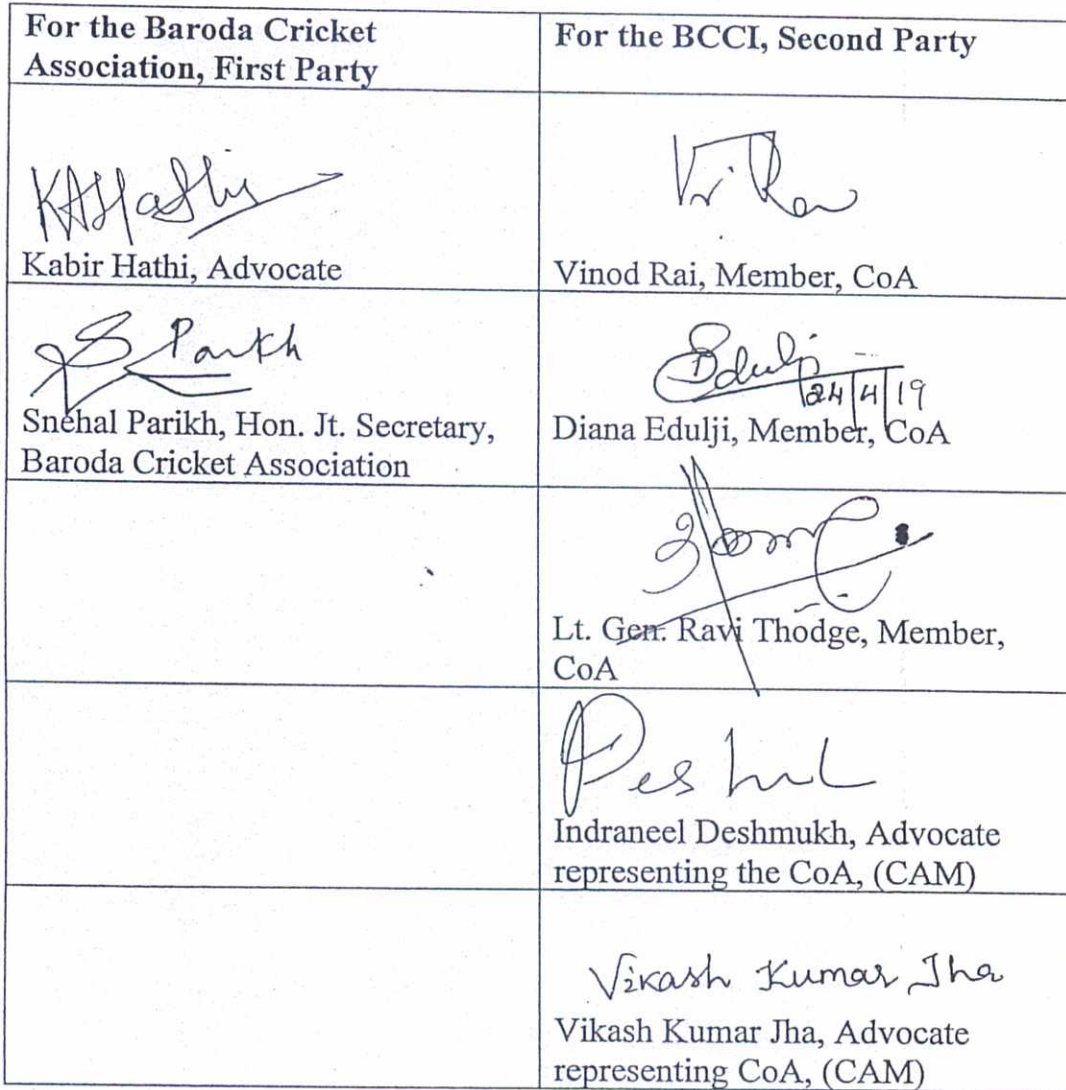 For the Baroda Cricket
Association, First Party
For the BCCI, Second Party
KAHathi
Kabir Hathi, Advocate
Vinod Rai, Member, CoA
S Parikh
Snehal Parikh, Hon. Jt. Secretary,
Baroda Cricket Association
DEdulji
24/4/19
Diana Edulji, Member, CoA
Lt. Gen. Ravi Thodge, Member,
CoA
Indraneel Deshmukh, Advocate
representing the CoA, (CAM)
Vikash Kumar Jha
Vikash Kumar Jha, Advocate
representing CoA, (CAM)